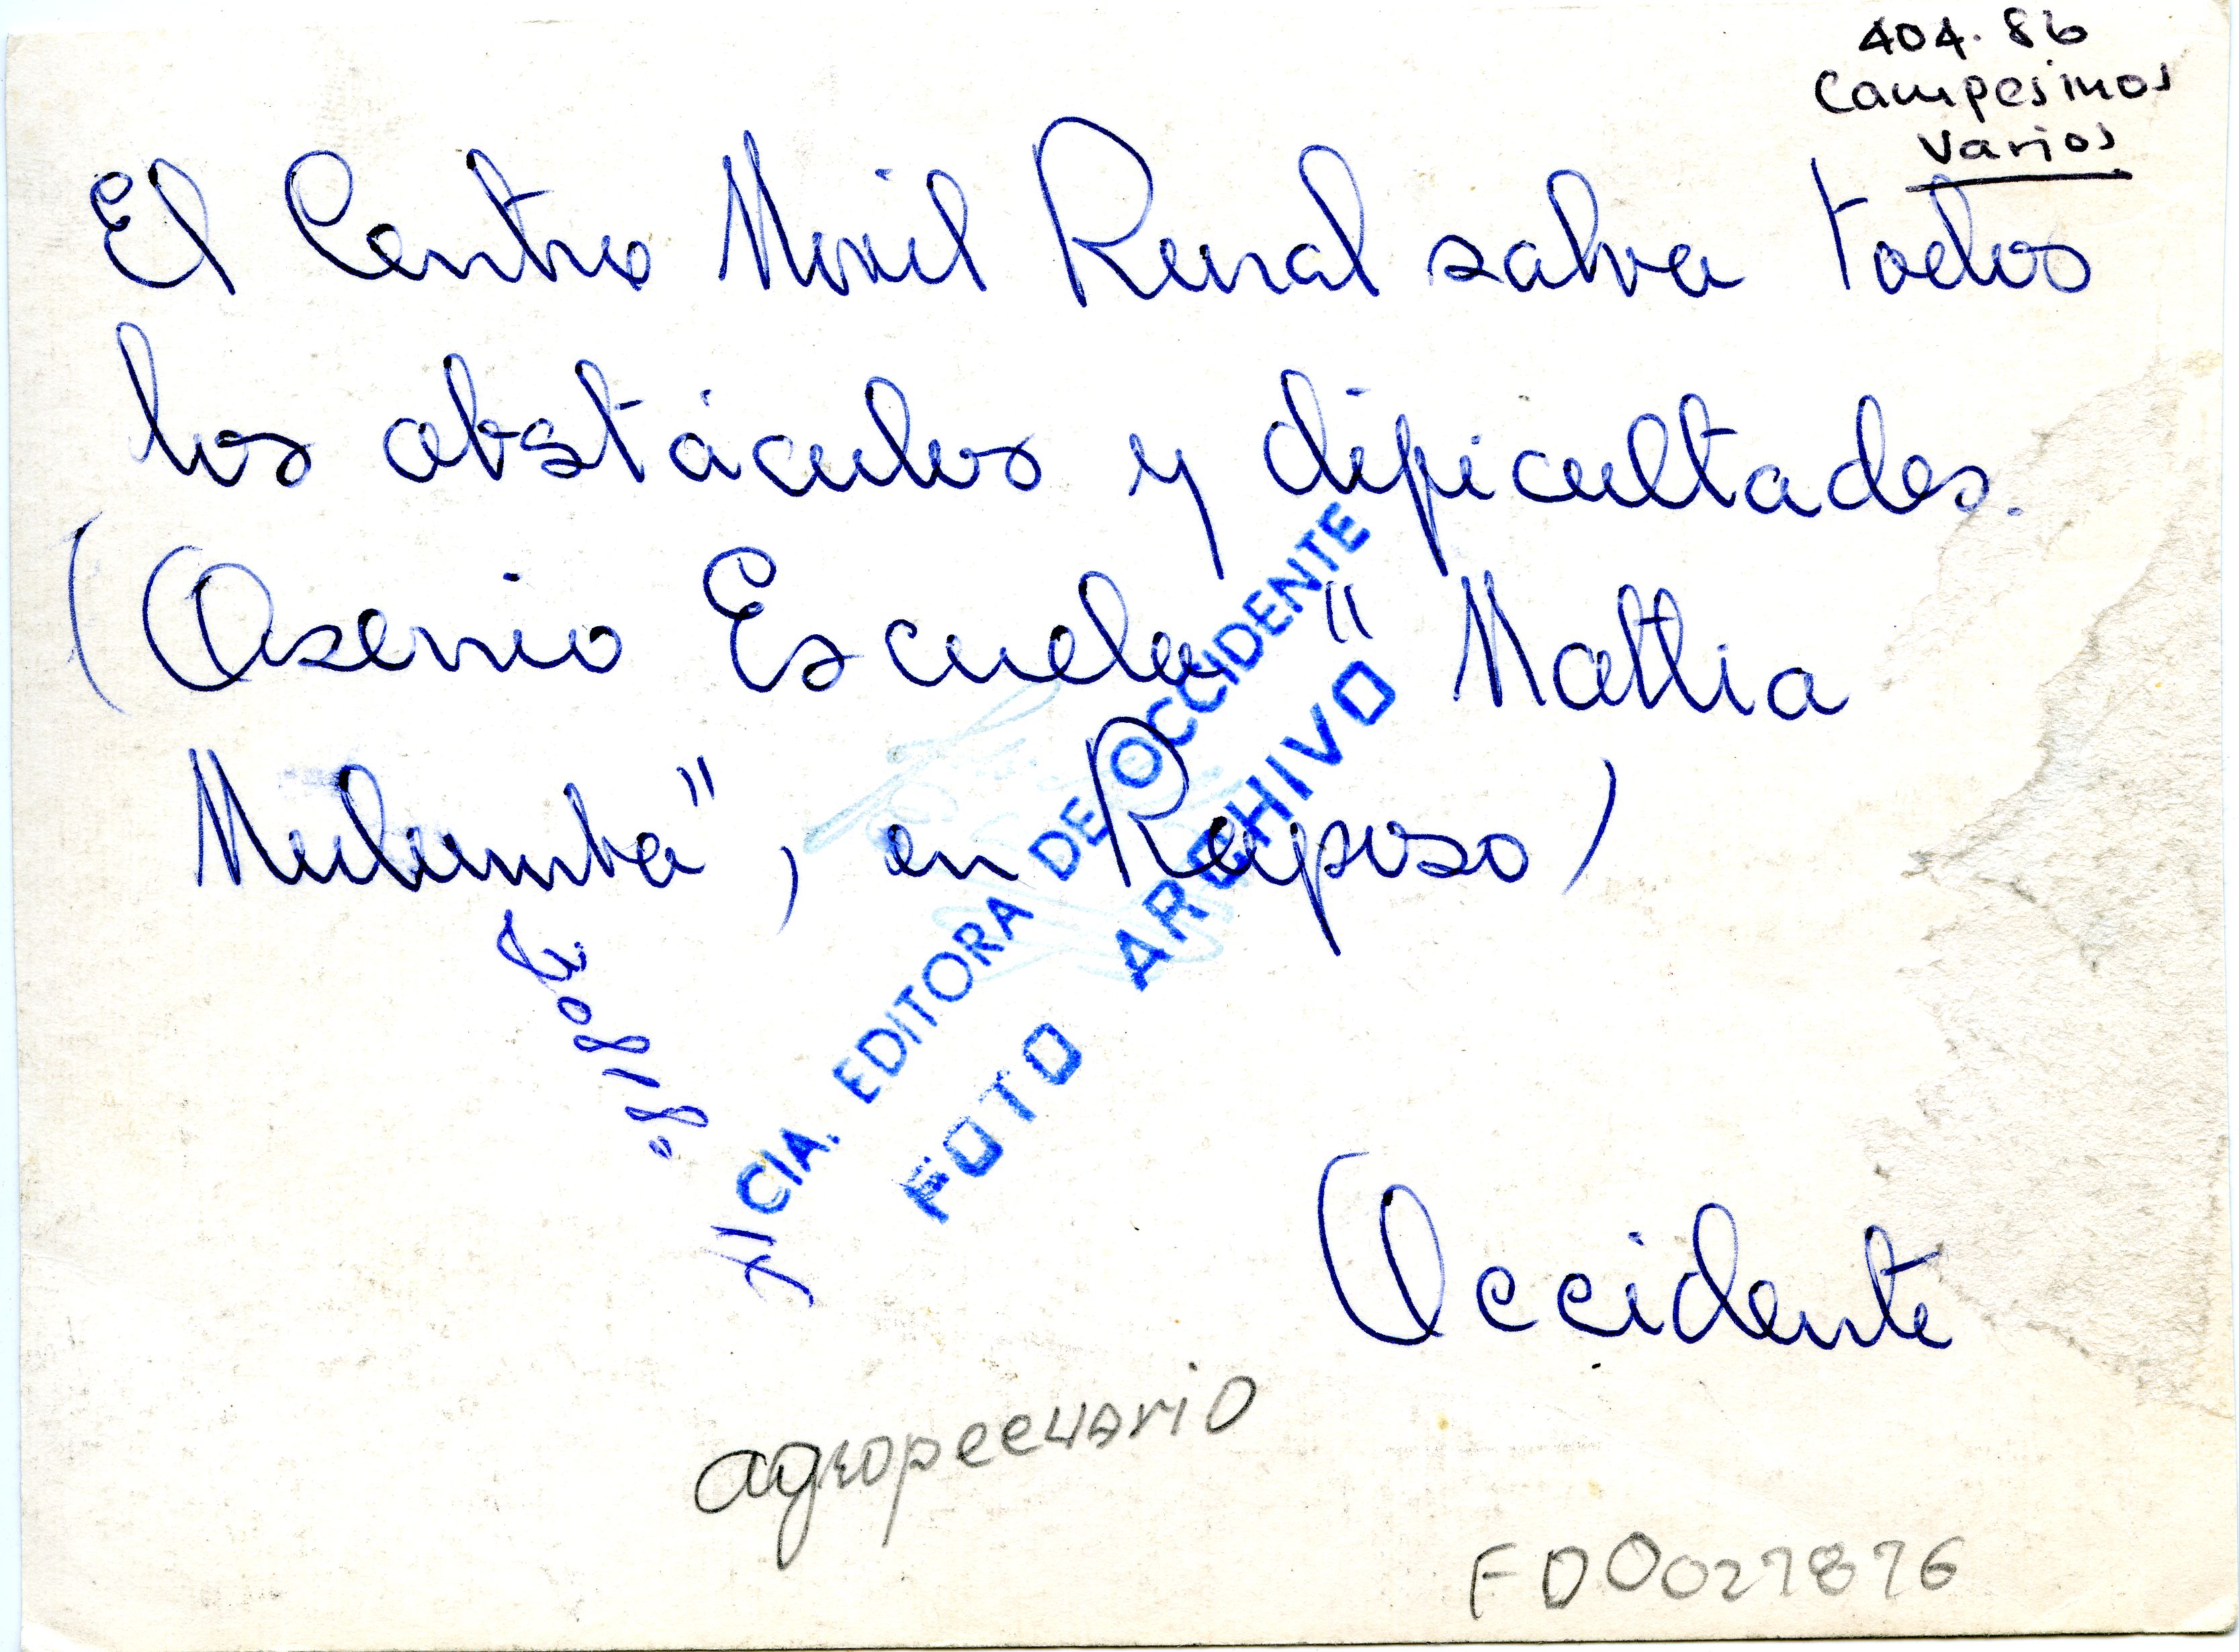 404.86
Campesinos
Varios
El Centro Movil Rural salva todos
los obstáculos y dificultades.
(Aserrio Escuela " Mattia
Mulumba", en Raposo)
CIA. EDITORA DE OCCIDENTE
FOTO ARCHIVO
Occidente
agropecuario
FD0027876